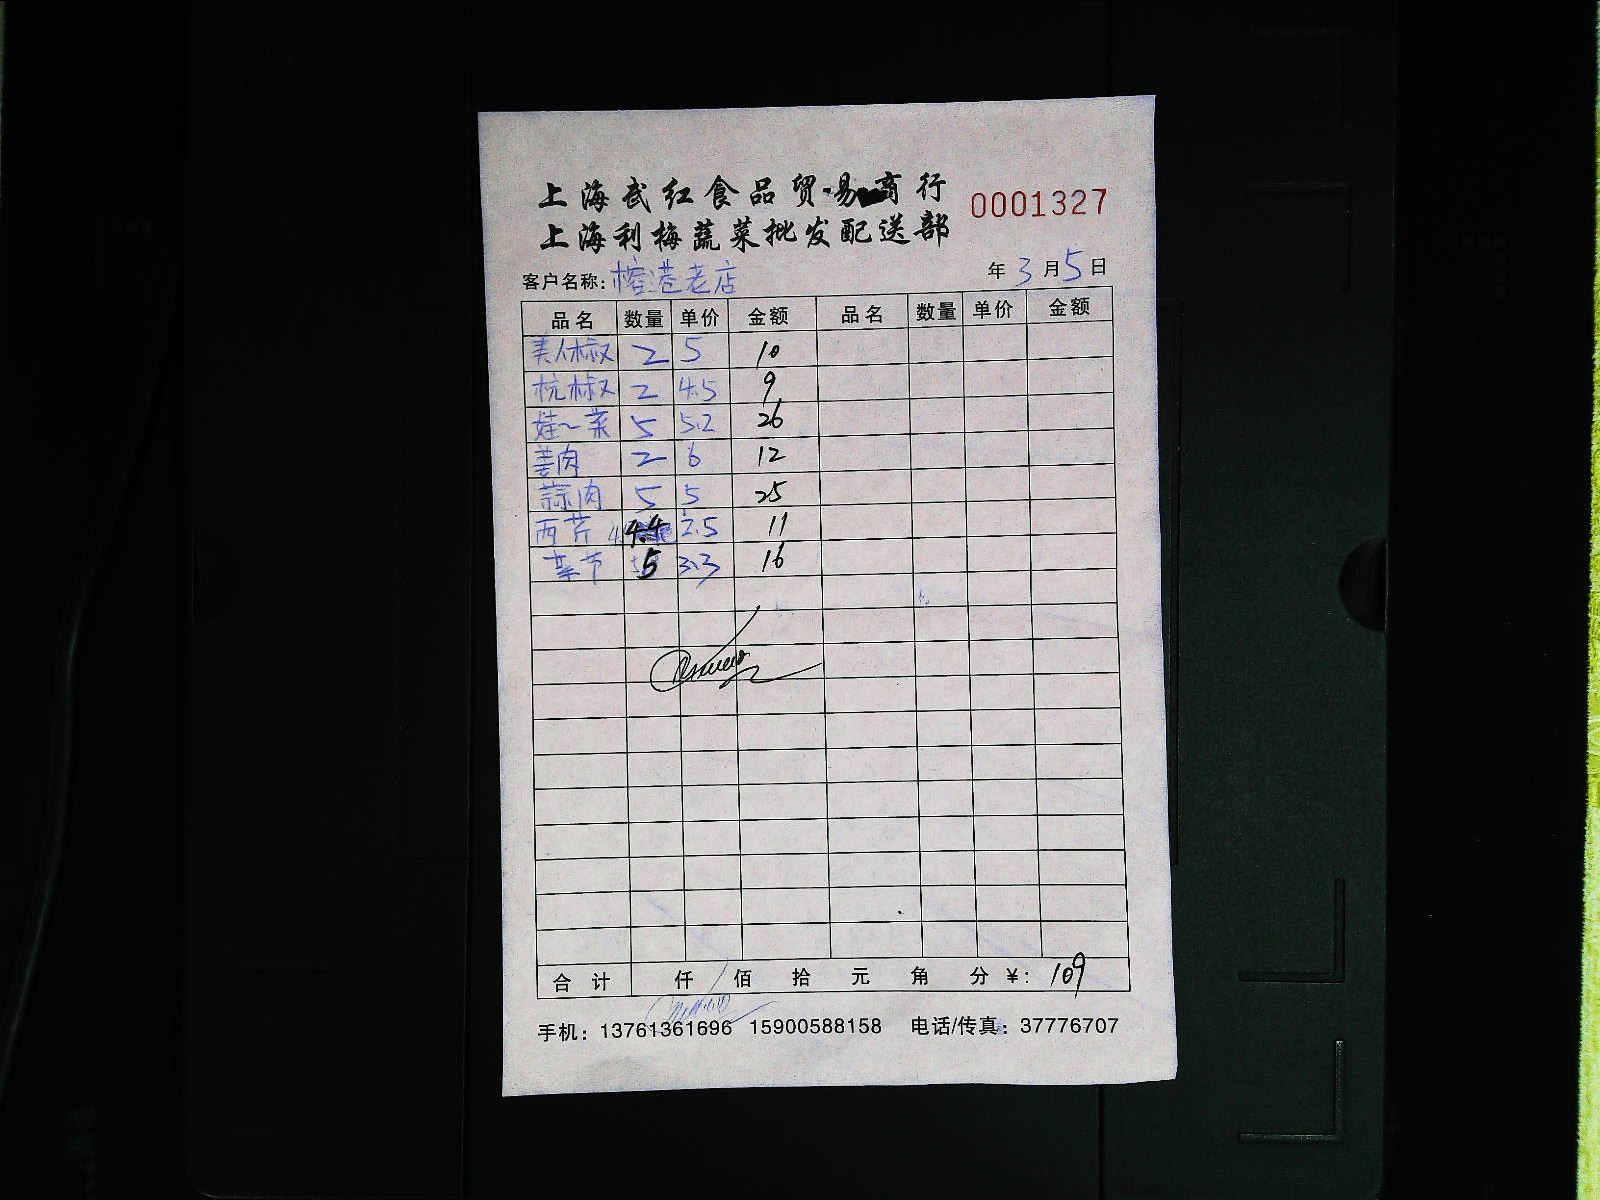 上海武红食品贸易商行
0001327
上海利梅蔬菜批发配送部
客户名称: 榕港老店 年 3 月 5 日
品名 数量 单价 金额 品名 数量 单价 金额
美人椒 2 5 10
杭椒 2 4.5 9
娃~菜 5 5.2 26
姜肉 2 6 12
蒜肉 5 5 25
西芹 4.4 2.5 11
5 3.3 16
合计 仟 佰 拾 元 角 分 ¥: 109
手机: 13761361696 15900588158 电话/传真: 37776707